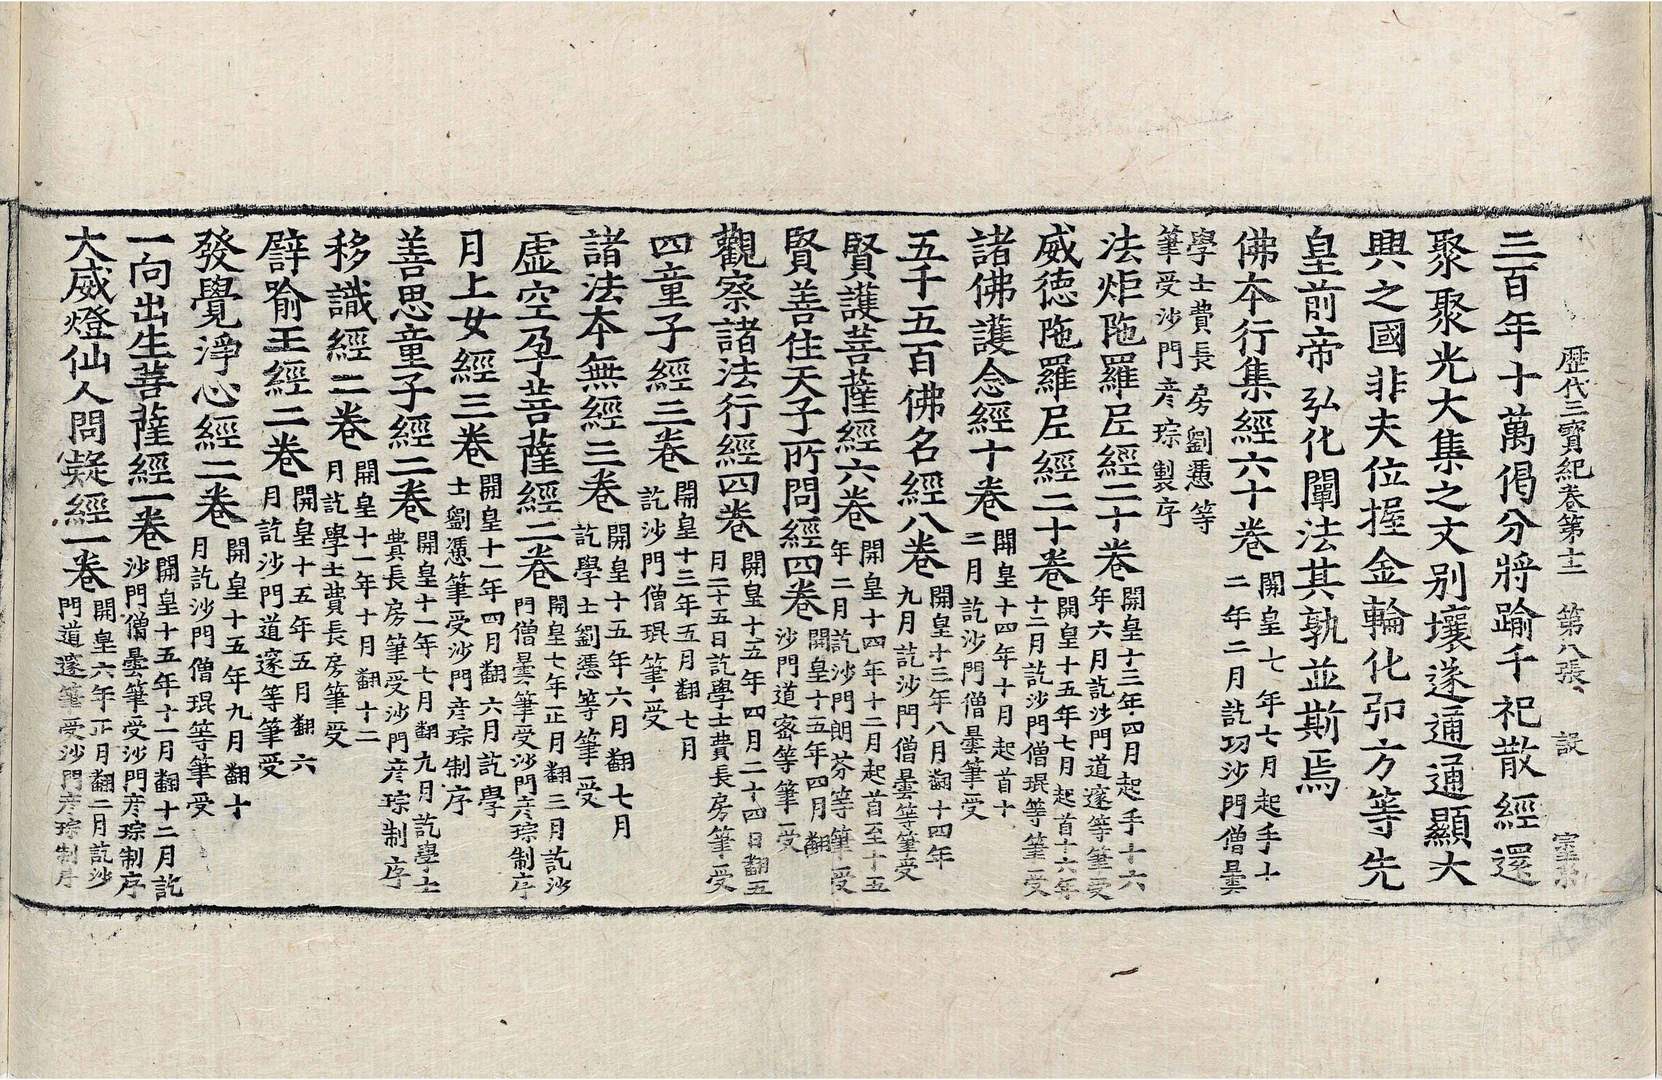 歷代三寶紀卷第十二 第八張 設
三百年十萬偈分將踰千祀散經還
聚聚光大集之文别壤遂通通顯大
興之國非夫位握金輪化卬方等先
皇前帝弘化闡法其孰並斯焉
佛本行集經六十卷 開皇七年七月起手十二年二月訖功沙門僧曇
學士費長房劉憑等筆受沙門彦琮製序
法炬陁羅尼經二十卷 開皇十三年四月起手十六年六月訖沙門道邃等筆受
威德陁羅尼經二十卷 開皇十五年七月起首十六年十二月訖沙門僧琨等筆受
諸佛護念經十卷 開皇十四年十月起首十二月訖沙門僧曇筆受
五千五百佛名經八卷 開皇十三年八月翻十四年九月訖沙門僧曇等筆受
賢護菩薩經六卷 開皇十四年十二月起首至十五年二月訖沙門明芬等筆受
賢善住天子所問經四卷 開皇十五年四月翻沙門道密等筆受
觀察諸法行經四卷 開皇十五年四月二十四日翻五月二十五日訖學士費長房筆受
四童子經三卷 開皇十三年五月翻七月訖沙門僧琨筆受
諸法本無經三卷 開皇十五年六月翻七月訖學士劉憑等筆受
虚空孕菩薩經二卷 開皇七年正月翻三月訖沙門僧曇筆受沙門彦琮制序
月上女經三卷 開皇十一年四月翻六月訖學士劉憑筆受沙門彦琮制序
善思童子經二卷 開皇十一年七月翻九月訖學士費長房筆受沙門彦琮制序
移識經二卷 開皇十一年十月翻十二月訖學士費長房筆受
譬喻王經二卷 開皇十五年五月翻六月訖沙門道邃等筆受
發覺淨心經二卷 開皇十五年九月翻十月訖沙門僧琨等筆受
一向出生菩薩經一卷 開皇十五年十一月翻十二月訖沙門僧曇筆受沙門彦琮制序
大威燈仙人問疑經一卷 開皇六年正月翻二月訖沙門道邃筆受沙門彦琮制序